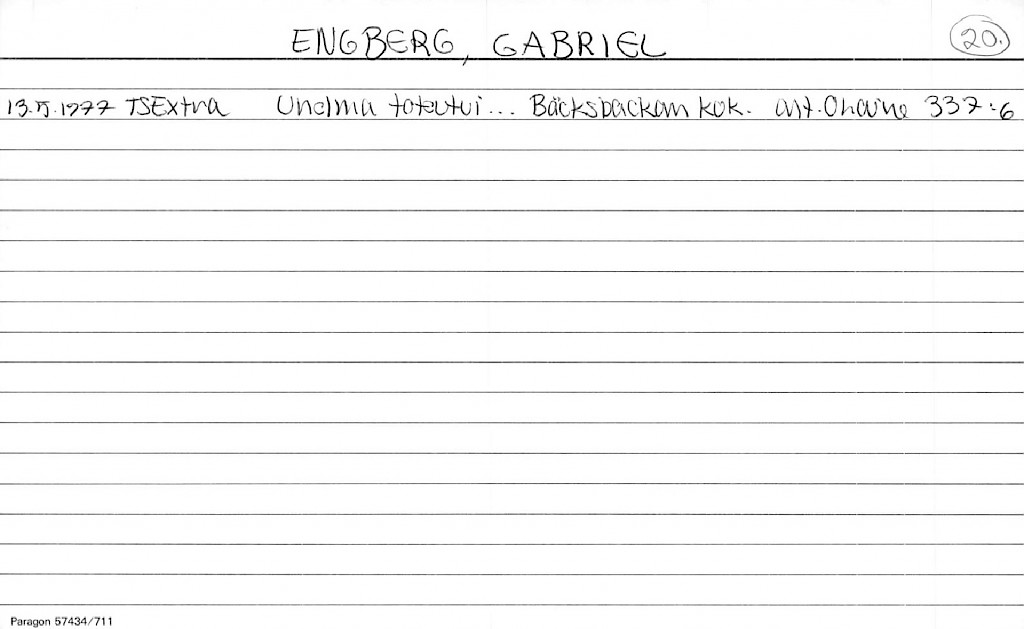 ENGBERG, GABRIEL 20.
13.5.1977 TSExtra Unelma toteutui... Bäcksbackan kok. ant. Ohaine 337:6
Paragon 57434/711